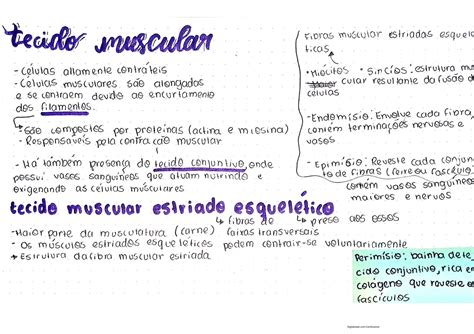 tecido muscular
- células altamente contráteis
- Células musculares são alongadas
e se contraem devido ao encurtamento
dos filamentos.
São compostos por proteínas (actina e miosina)
- Responsáveis pela contração muscular
- Há também presença do tecido conjuntivo, onde
possui vasos sanguíneos que atuam nutrindo e
oxigenando as células musculares
tecido muscular estriado esquelético
fibras de
preso aos ossos
- Maior parte da musculatura (carne) faixas transversais
- Os músculos estriados esqueléticos podem contrair-se voluntariamente
Estrutura da fibra muscular estriada
Fibras muscular estriadas esquele
ticas
Miócitos - Sincios: estrutura mus
cular resultante da fusão de
células
- Endomísio: Envolve cada fibra,
contém terminações nervosas e
vasos
- Epimísio: Reveste cada conjun
to de fibras (feixe ou fascículo)
contém vasos sanguíneos
maiores e nervos
Perimísio: bainha de te
cido conjuntivo, rica em
colágeno que reveste os
fascículos